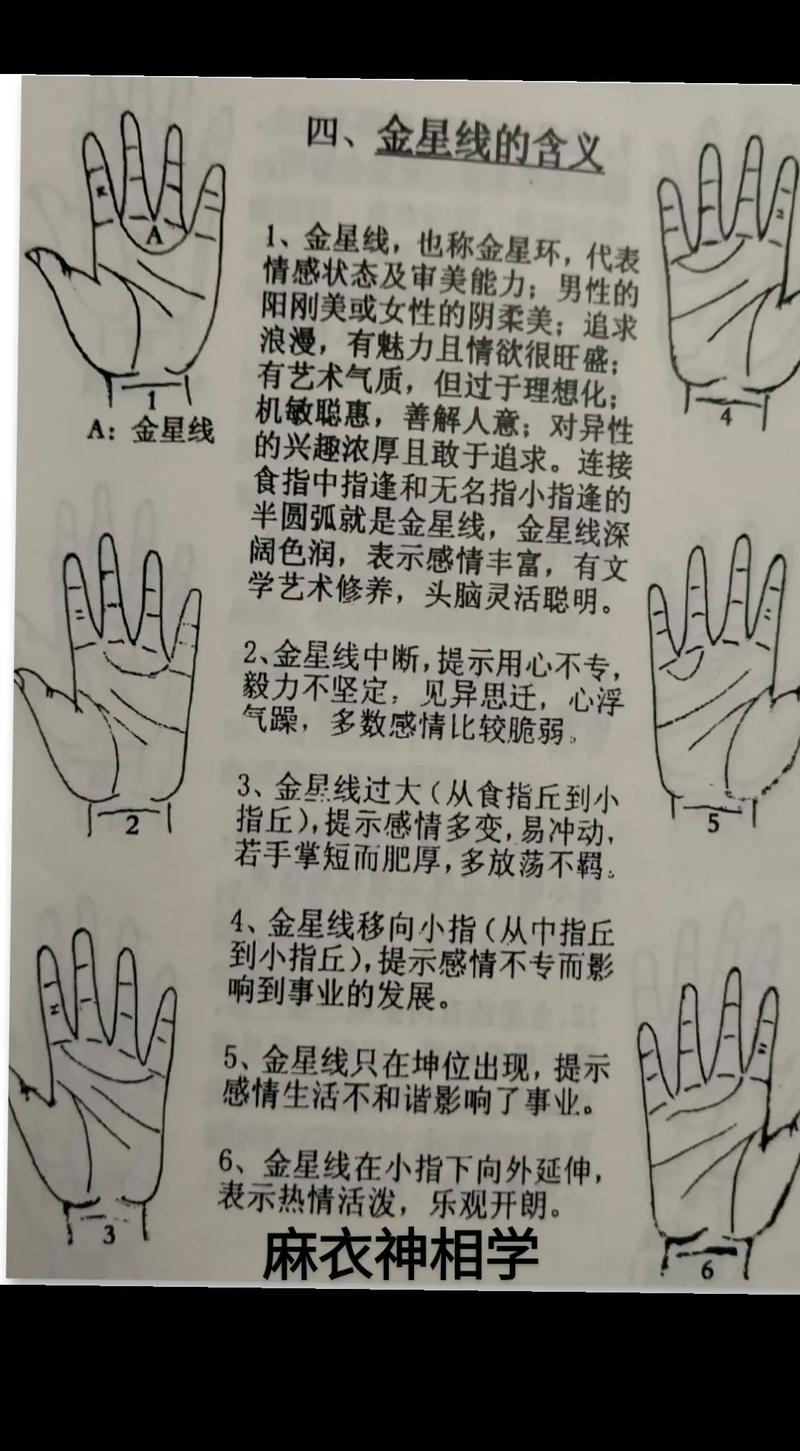 四、金星线的含义
1、金星线，也称金星环，代表
情感状态及审美能力；男性的
阳刚美或女性的阴柔美；追求
浪漫，有魅力且情欲很旺盛；
有艺术气质，但过于理想化；
机敏聪惠，善解人意；对异性
的兴趣浓厚且敢于追求。连接
食指中指逢和无名指小指逢的
半圆弧就是金星线，金星线深
阔色润，表示感情丰富，有文
学艺术修养，头脑灵活聪明。
2、金星线中断，提示用心不专，
毅力不坚定，见异思迁，心浮
气躁，多数感情比较脆弱。
3、金星线过大（从食指丘到小
指丘），提示感情多变，易冲动，
若手掌短而肥厚，多放荡不羁。
4、金星线移向小指（从中指丘
到小指丘），提示感情不专而影
响到事业的发展。
5、金星线只在坤位出现，提示
感情生活不和谐影响了事业。
6、金星线在小指下向外延伸，
表示热情活泼，乐观开朗。
麻衣神相学
A
1
A：金星线
2
3
4
5
6